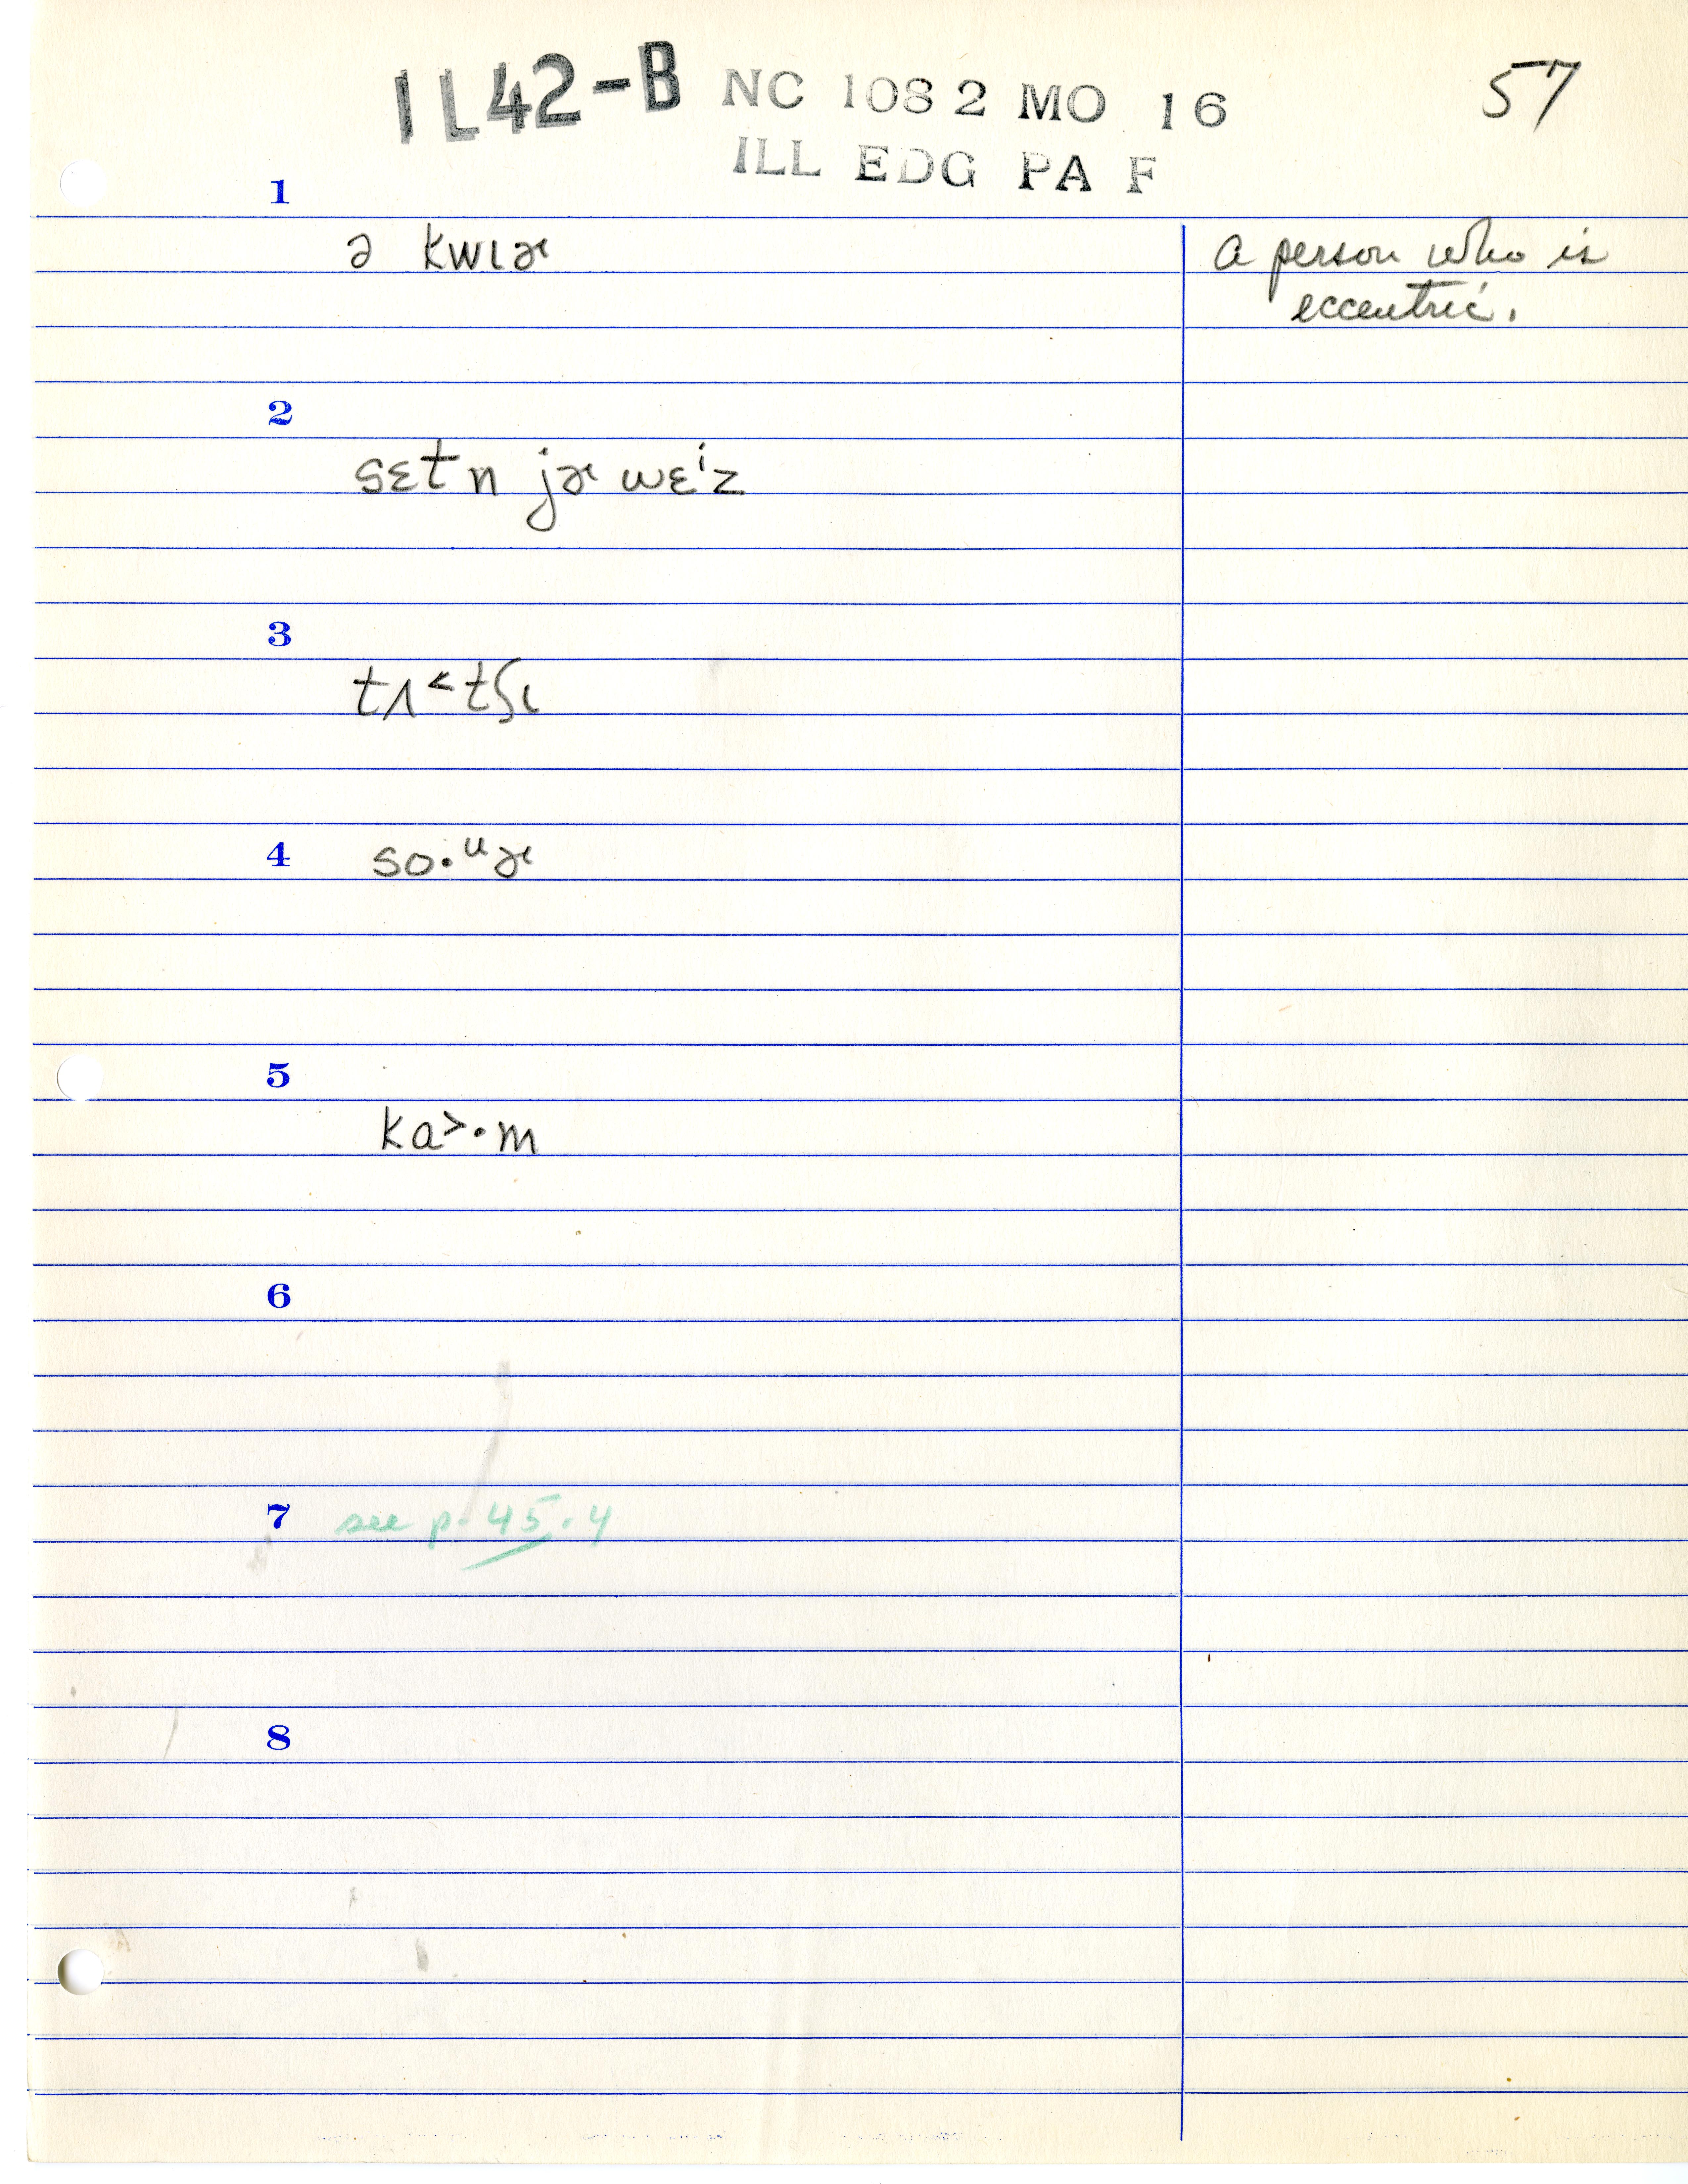 IL42-B NC 1082 MO 16 57
ILL EDG PA F
1
ə kwɪɚ a person who is
eccentric.
2
sɛtn jɚ wɛⁱz
3
tʌ˂tʃɩ
4 so·ᵘɚ
5
ka˃·m
6
7 see p. 45.4
8